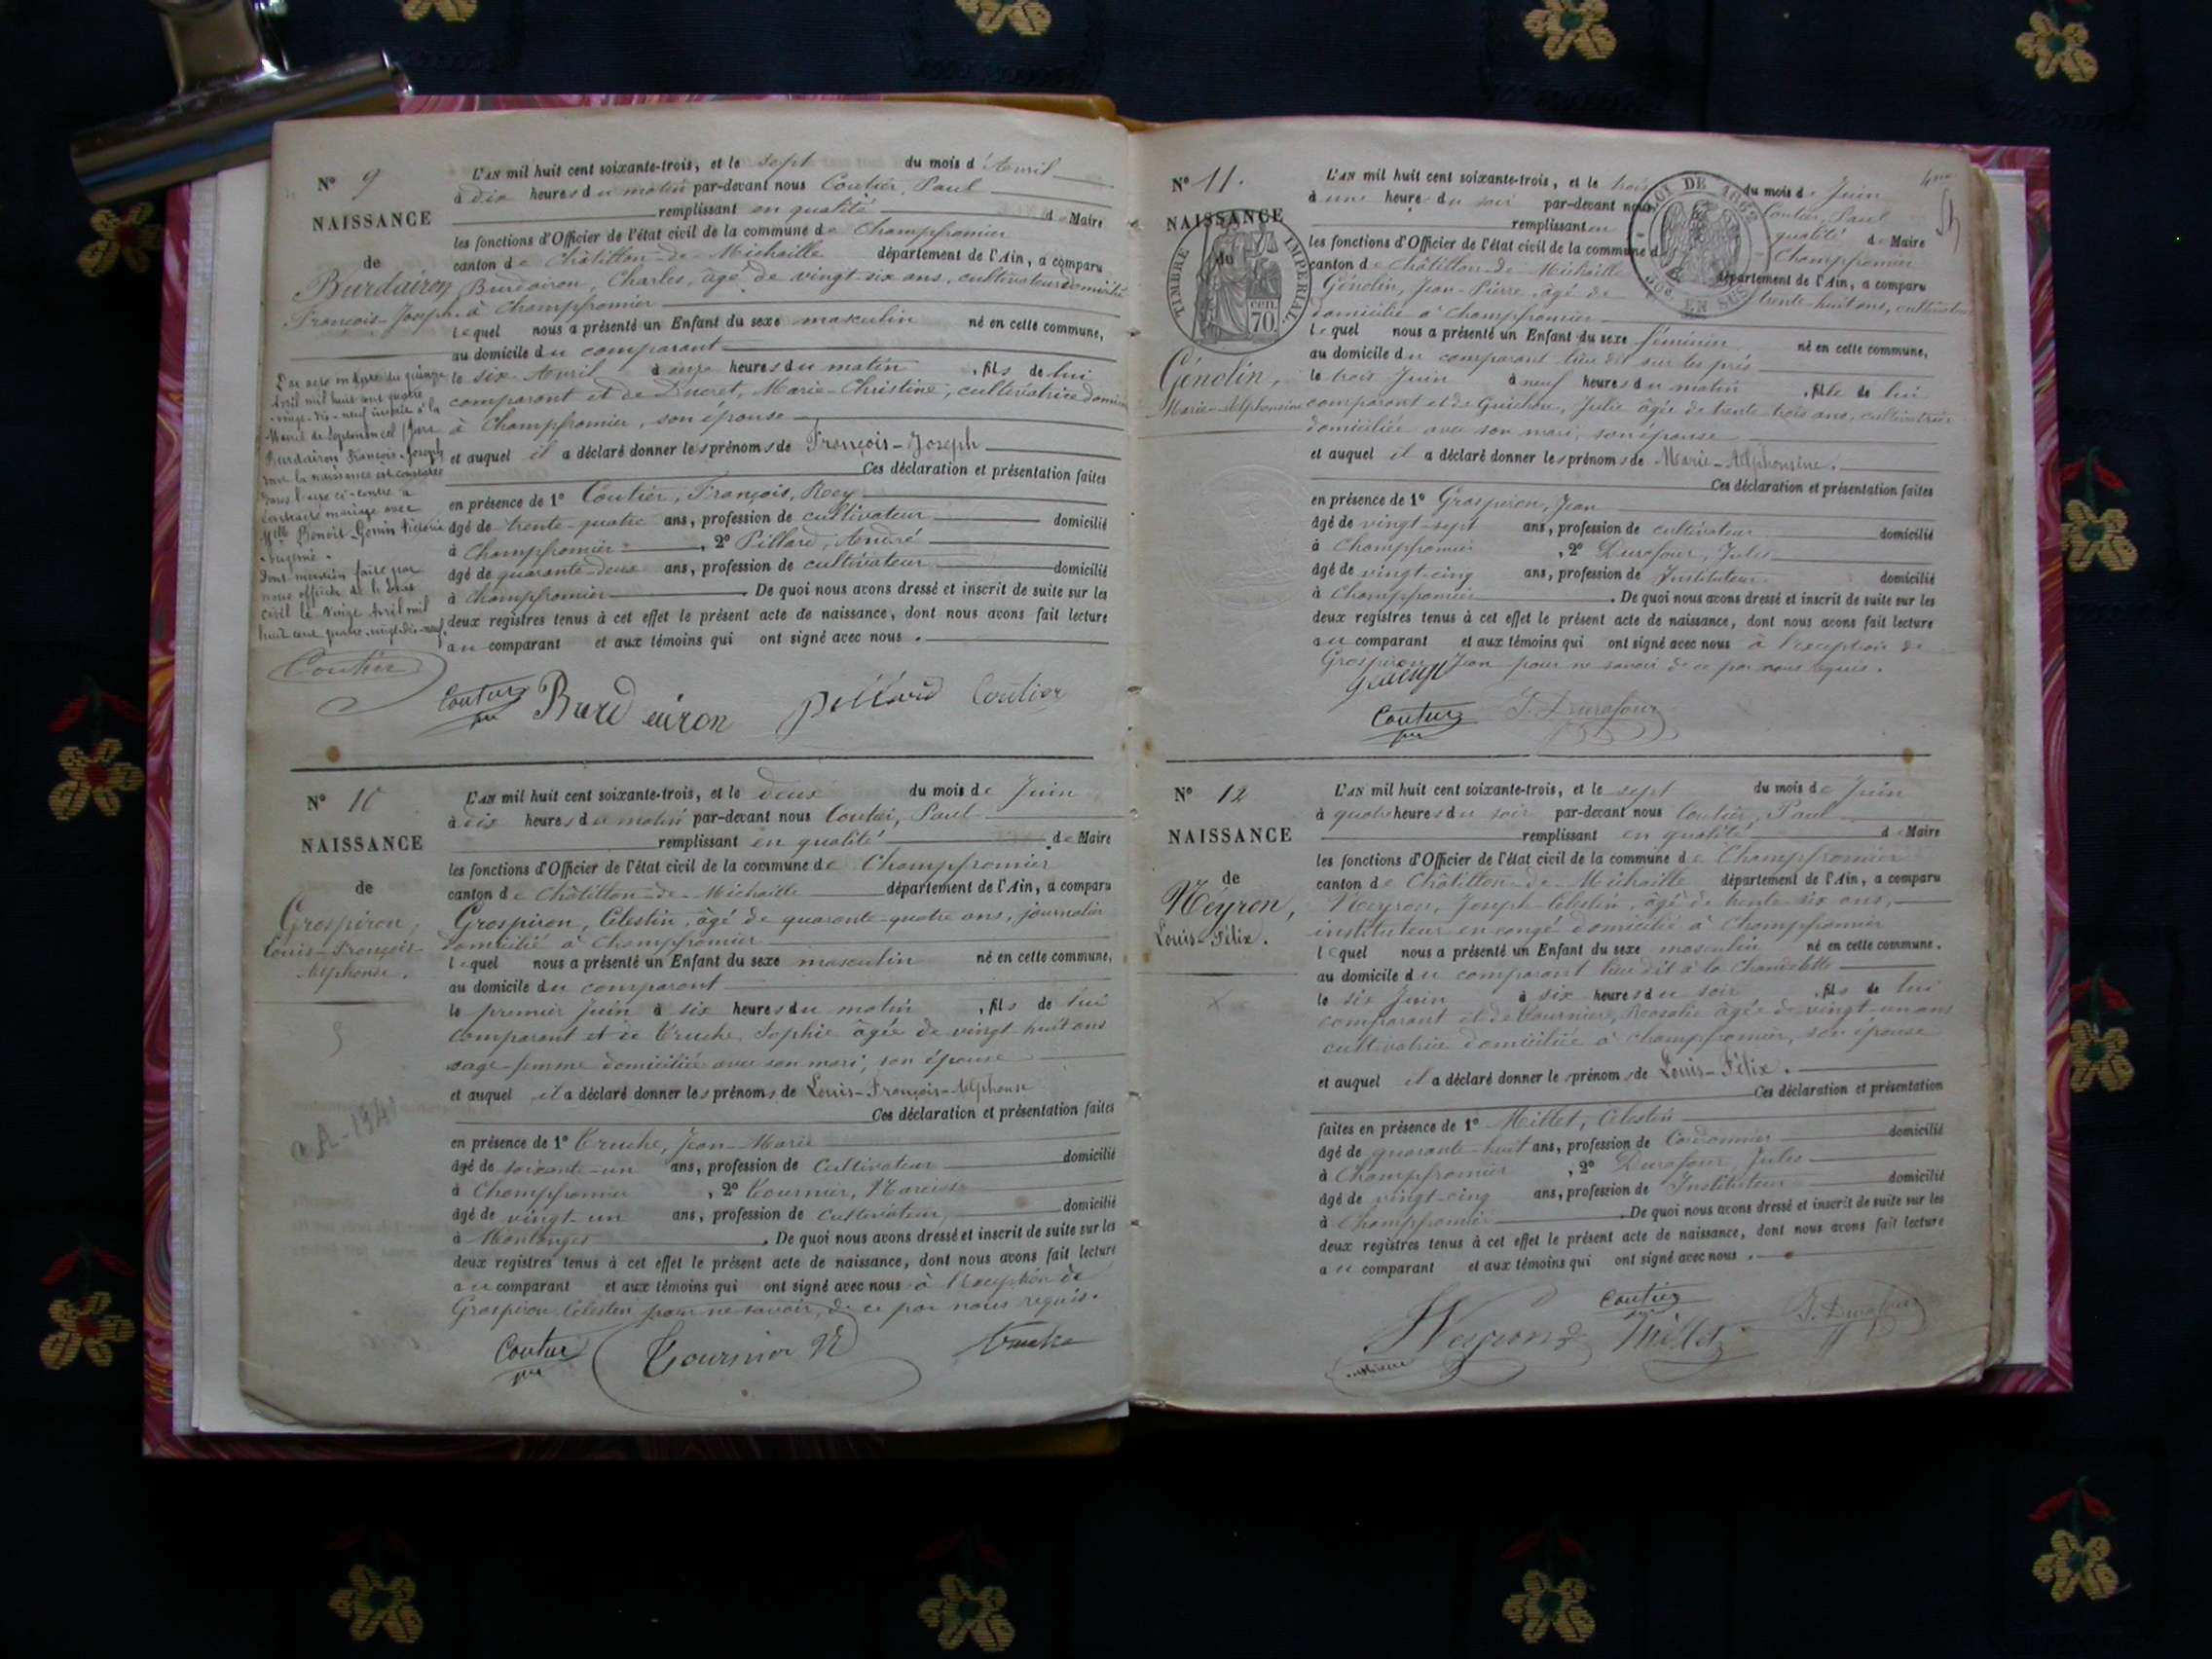 N° 9
NAISSANCE
de
Burdairon
François-Joseph
L'AN mil huit cent soixante-trois, et le sept du mois d'Avril
à dix heures du matin par-devant nous Coutier, Paul
remplissant en qualité de Maire
les fonctions d'Officier de l'état civil de la commune de Champfromier
canton de Châtillon-de-Michaille département de l'Ain, a comparu
Burdairon, Charles, âgé de vingt-six ans, cultivateur domicilié
à Champfromier
lequel nous a présenté un Enfant du sexe masculin né en cette commune,
au domicile du comparant
le six Avril à onze heures du matin, fils de lui
comparant et de Ducret, Marie-Christine, cultivatrice
à Champfromier, son épouse
et auquel il a déclaré donner les prénoms de François-Joseph
Ces déclaration et présentation faites
en présence de 1° Coutier, François, Roey
âgé de trente-quatre ans, profession de cultivateur domicilié
à Champfromier, 2° Pillard, André
âgé de quarante-deux ans, profession de cultivateur domicilié
à Champfromier. De quoi nous avons dressé et inscrit de suite sur les
deux registres tenus à cet effet le présent acte de naissance, dont nous avons fait lecture
au comparant et aux témoins qui ont signé avec nous.
Par acte en date du quinze
Avril mil huit cent quatre
-vingt-dix-neuf inscrit à la
Mairie de Septmoncel (Jura
Burdairon François-Joseph
dont la naissance est constatée
dans l'acte ci-contre a
contracté mariage avec
Melle Benoit-Gonin Victorine
Dont mention faite par
nous officier de l'état
civil le seize Avril mil
huit cent quatre-vingt-dix-neuf.
Coutier
Coutier Burdairon Pillard Coutier
N° 10
NAISSANCE
de
Grospiron,
Louis-François-
Alphonse.
L'AN mil huit cent soixante-trois, et le deux du mois de Juin
à dix heures du matin par-devant nous Coutier, Paul
remplissant en qualité de Maire
les fonctions d'Officier de l'état civil de la commune de Champfromier
canton de Châtillon-de-Michaille département de l'Ain, a comparu
Grospiron, Célestin, âgé de quarante-quatre ans, journalier
domicilié à Champfromier
lequel nous a présenté un Enfant du sexe masculin né en cette commune,
au domicile du comparant
le premier Juin à six heures du matin, fils de lui
comparant et de Truche, Sophie âgée de vingt-huit ans
sage-femme domiciliée avec son mari, son épouse
et auquel il a déclaré donner les prénoms de Louis-François-Alphonse
Ces déclaration et présentation faites
en présence de 1° Truche, Jean-Marie
âgé de soixante-un ans, profession de Cultivateur domicilié
à Champfromier, 2° Tournier, Narcisse
âgé de vingt-un ans, profession de Cultivateur domicilié
à Montanges. De quoi nous avons dressé et inscrit de suite sur les
deux registres tenus à cet effet le présent acte de naissance, dont nous avons fait lecture
au comparant et aux témoins qui ont signé avec nous à l'exception de
Grospiron Célestin pour ne savoir, de ce par nous requis.
Coutier Tournier N Truche
N° 11.
NAISSANCE
de
TIMBRE IMPERIAL
70 cen
Génolin,
Marie-Alphonsine
LOI DE 1862
EN SUS
L'AN mil huit cent soixante-trois, et le trois du mois de Juin
à une heure du soir par-devant nous Coutier, Paul
remplissant en qualité de Maire
les fonctions d'Officier de l'état civil de la commune de Champfromier
canton de Châtillon-de-Michaille département de l'Ain, a comparu
Génolin, Jean-Pierre, âgé de trente-huit ans, cultivateur
domicilié à Champfromier
lequel nous a présenté un Enfant du sexe féminin né en cette commune,
au domicile du comparant lieu dit sur les prés
le trois Juin à neuf heures du matin, fille de lui
comparant et de Guichon, Julie âgée de trente-trois ans, cultivatrice
domiciliée avec son mari, son épouse
et auquel il a déclaré donner les prénoms de Marie-Alphonsine.
Ces déclaration et présentation faites
en présence de 1° Grospiron, Jean
âgé de vingt-sept ans, profession de cultivateur domicilié
à Champfromier, 2° Durafour, Jules
âgé de vingt-cinq ans, profession de Instituteur domicilié
à Champfromier. De quoi nous avons dressé et inscrit de suite sur les
deux registres tenus à cet effet le présent acte de naissance, dont nous avons fait lecture
au comparant et aux témoins qui ont signé avec nous à l'exception de
Grospiron Jean pour ne savoir de ce par nous requis.
Coutier J. Durafour
N° 12
NAISSANCE
de
Neyron,
Louis-Félix.
L'AN mil huit cent soixante-trois, et le sept du mois de Juin
à quatre heures du soir par-devant nous Coutier, Paul
remplissant en qualité de Maire
les fonctions d'Officier de l'état civil de la commune de Champfromier
canton de Châtillon-de-Michaille département de l'Ain, a comparu
Neyron, Joseph-Célestin, âgé de trente-six ans,
instituteur en congé domicilié à Champfromier
lequel nous a présenté un Enfant du sexe masculin né en cette commune,
au domicile du comparant lieu dit à la Chandelette
le six Juin à six heures du soir, fils de lui
comparant et de Tournier, Rosalie âgée de vingt-un ans
cultivatrice domiciliée à Champfromier, son épouse
et auquel il a déclaré donner les prénoms de Louis-Félix.
Ces déclaration et présentation
faites en présence de 1° Millet, Célestin
âgé de quarante-huit ans, profession de Cordonnier domicilié
à Champfromier, 2° Durafour, Jules
âgé de vingt-cinq ans, profession de Instituteur domicilié
à Champfromier. De quoi nous avons dressé et inscrit de suite sur les
deux registres tenus à cet effet le présent acte de naissance, dont nous avons fait lecture
au comparant et aux témoins qui ont signé avec nous.
Neyron Coutier Millet J. Durafour